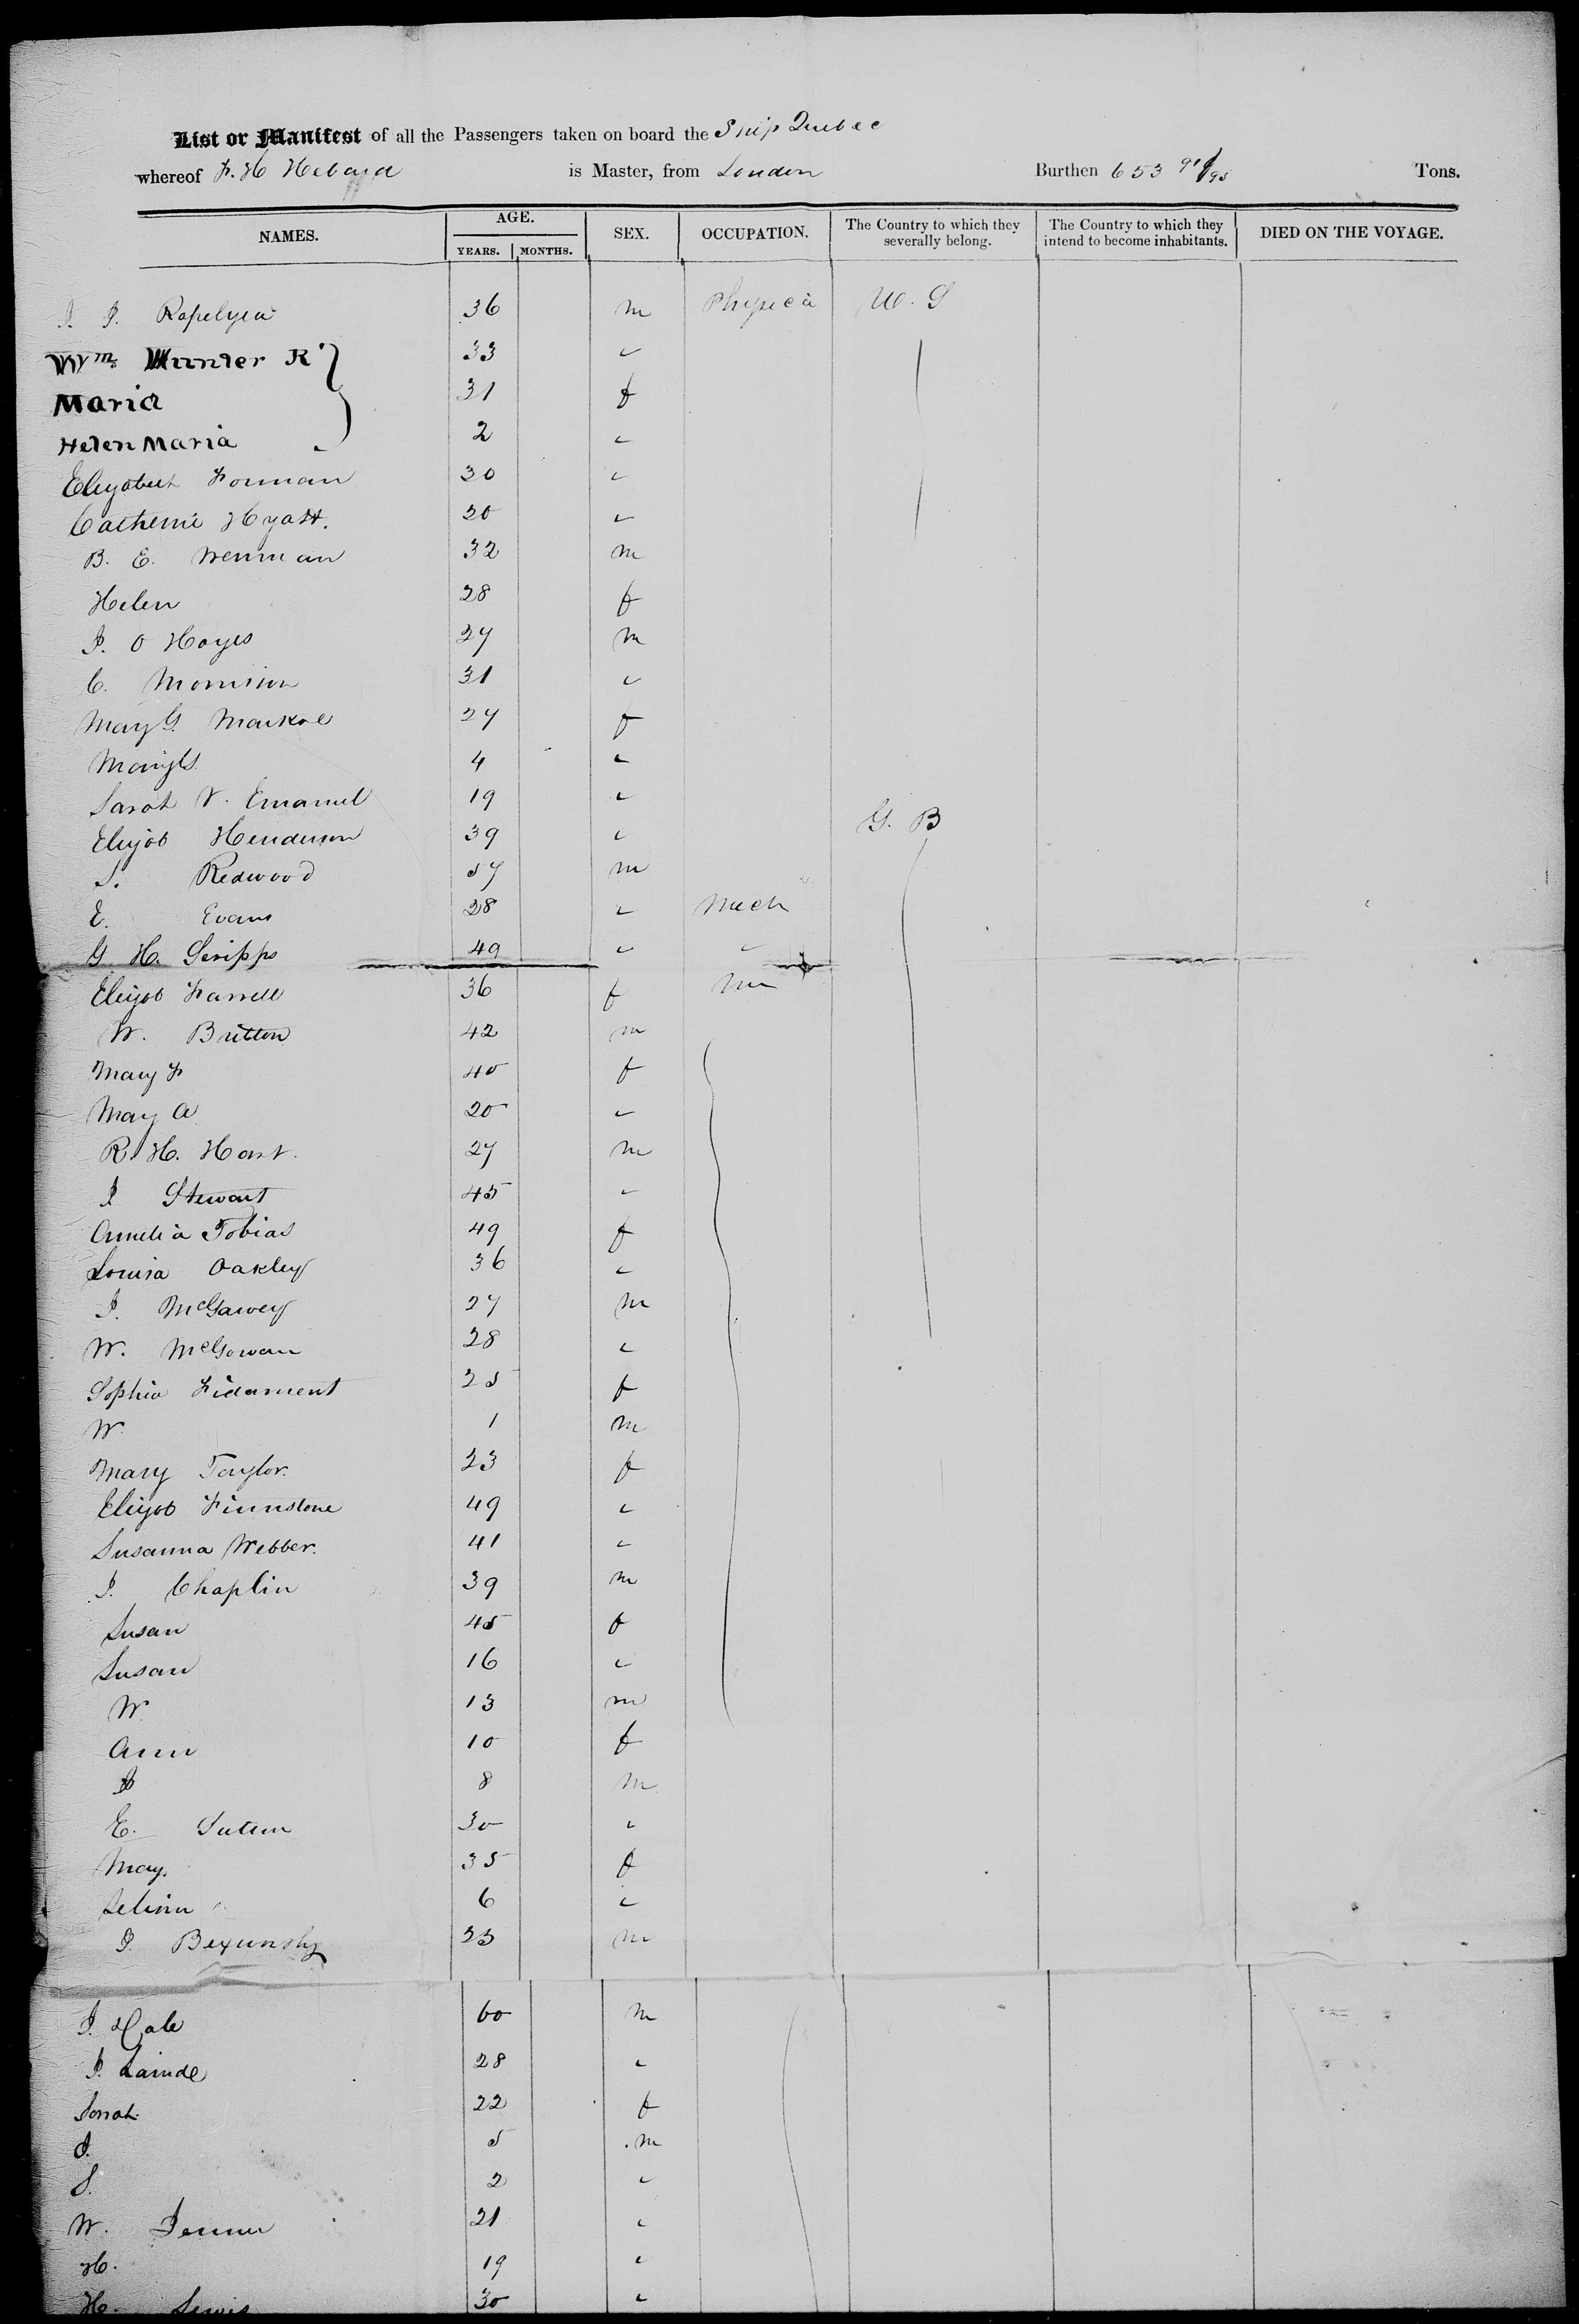 List or Manifest of all the Passengers taken on board the Ship Quebec
whereof F. H Hebard is Master, from London Burthen 653 91/95 Tons.
NAMES. AGE. YEARS. MONTHS. SEX. OCCUPATION. The Country to which they severally belong. The Country to which they intend to become inhabitants. DIED ON THE VOYAGE.
I. I. Rapelyea 36 m U. S
Wm Hunter R 33 "
Maria 31 f
Helen Maria 2 "
Elizabeth Forman 30 "
Catherine Hyatt. 20 "
B. E. Wenman 32 m
Helen 28 f
J. O Hayes 27 m
C. Morrison 31 "
Mary G. Markoe 27 f
4 "
Sarah V. Emanuel 19 "
Elizab Henderson 39 " G. B
S. Redwood 57 m
E. Evans 28 " Mech
G H. Scripps 49 " "
Elizab Farrell 36 f
W. Britton 42 m
Mary F 40 f
Mary A 20 "
R. H. Hart. 27 m
J Stewart 45 "
Amelia Tobias 49 f
Louisa Oakley 36 "
J. McGarvey 27 m
W. McGowan 28 "
Sophia Fidament 25 f
W. 1 m
Mary Taylor. 23 f
Elizab Finnstone 49 "
Susanna Webber. 41 "
J. Chaplin 39 m
Susan 45 f
Susan 16 "
W 13 m
Ann 10 f
J 8 m
E. Sutton 30 "
Mary. 35 f
Selina 6 "
J. 23 m
J. Hale 60 m
J. 28 "
Sarah 22 f
J. 5 m
S. 2 "
W. Jenner 21 "
H. 19 "
H. Lewis 30 "